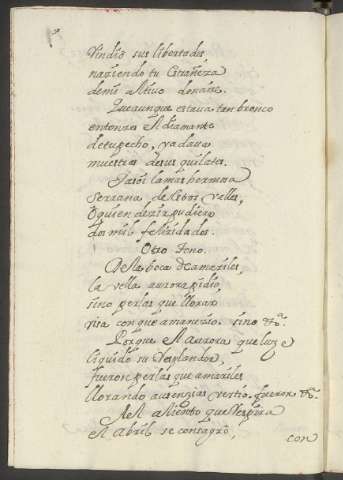 Rindio sus libertades
naziendo tu Estrañeza
de mi Altivo donaire.
Que aunque estava tan bronco
entonzes el diamante
de tu pecho, ya dava
muestras de sus quilates.
la mas hermosa
serrana de estos valles,
O quien dezir pudiera
dos mil felizidades.
Otro tono.
De la boca de amariles,
la vella aurora pidio,
sino perlas que llorar
risa con que amanezio. sino &a.
Porque el Aurora que luze
liquido su resplandor,
fueron perlas que amariles
llorando ausenzias vertio. fueron &a.
Del aliento que respira
el Abril se consagro,
con